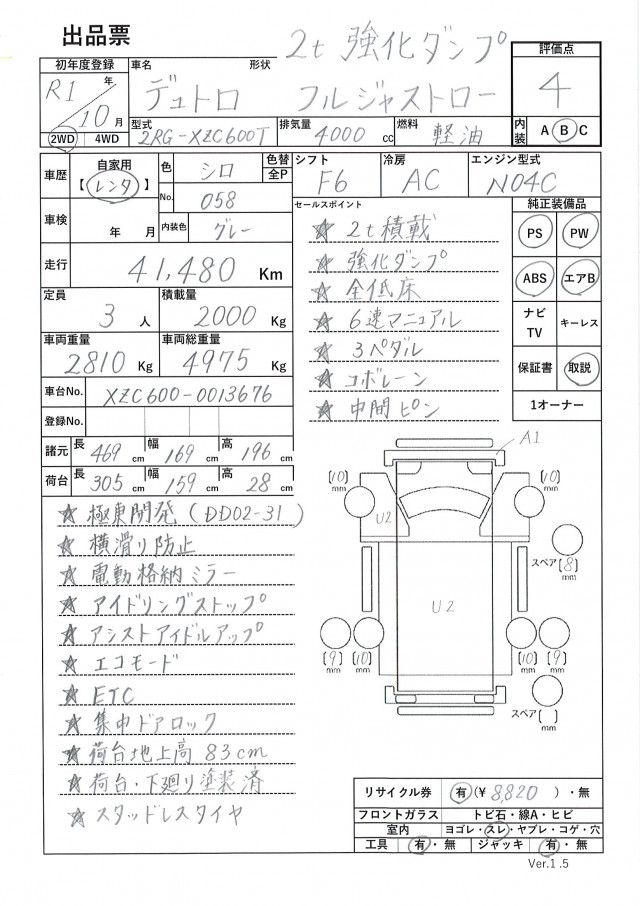 出品票
2t 強化ダンプ
初年度登録 R1年/10月
2WD 4WD
車名 デュトロ 形状 フルジャストロー
型式 2RG-XZC600T 排気量 4000 cc 燃料 軽油
評価点 4
内装 A B C
車歴 自家用 【レンタ】
色 シロ 色替 全P
No. 058
シフト F6 冷房 AC エンジン型式 N04C
車検 年 月 内装色 グレー
走行 41,480 Km
定員 3 人 積載量 2000 Kg
車両重量 2810 Kg 車両総重量 4975 Kg
車台No. XZC600-0013676
登録No.
諸元 長 469 cm 幅 169 cm 高 196 cm
荷台 長 305 cm 幅 159 cm 高 28 cm
セールスポイント
☆ 2t積載
☆ 強化ダンプ
☆ 全低床
☆ 6速マニュアル
☆ 3ペダル
☆ コボレーン
☆ 中間ピン
純正装備品
PS PW
ABS エアB
ナビTV キーレス
保証書 取説
1オーナー
☆ 極東開発(DD02-31)
☆ 横滑り防止
☆ 電動格納ミラー
☆ アイドリングストップ
☆ アシストアイドルアップ
☆ エコモード
☆ ETC
☆ 集中ドアロック
☆ 荷台地上高 83cm
☆ 荷台・下廻り塗装済
☆ スタッドレスタイヤ
A1
[10]mm [10]mm
U2
スペア[8]mm
U2
[9]mm [10]mm [10]mm [9]mm
スペア[ ]mm
リサイクル券 有(¥ 8,820 )・無
フロントガラス トビ石・線A・ヒビ
室内 ヨゴレ・スレ・ヤブレ・コゲ・穴
工具 有・無 ジャッキ 有・無
Ver.1.5